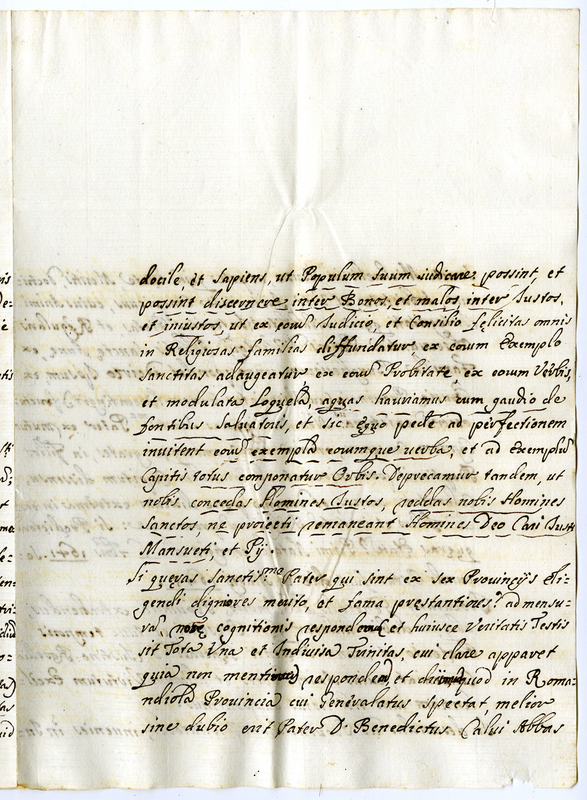 docile et Sapiens, ut Populum suum iudicare possint, et
possint discernere inter Bonos, et malos, inter Iustos,
et iniustos, ut ex eorū Iudicio, et Consilio felicitas omnis
in Religiosas familias diffundatur, ex eorum Exemplo
Sanctitas adaugeatur ex eorū Probitate, ex eorum Verbis,
et modulata Loquela, aquas hauriamus cum gaudio de
fontibus Saluatoris, et sic equo pede ad perfectionem
inuitent eorū exempla eorumque uerba, et ad Exemplū
Capitis totus componatur Orbis. Deprecamur tandem, ut
nobis concedas Homines Iustos, reddas nobis Homines
Sanctos, ne proiecti remaneant Homines Deo Cari Iusti
Mansueti, et Pij.
Si queras Sanctis.mo Pater qui sint ex Sex Provincijs Eli-
gendi digniores merito, et fama prestantiores? ad mensu-
rā cognitionis respondeo et huiusce Veritatis Testis
sit Tota Vna et Indiuisa Trinitas, cui clare apparet
quia non respondeo et quod in Roma-
ndiola Prouincia cui Generalatus spectat, melior
sine dubio erit Pater D. Benedictus Calui Abbas